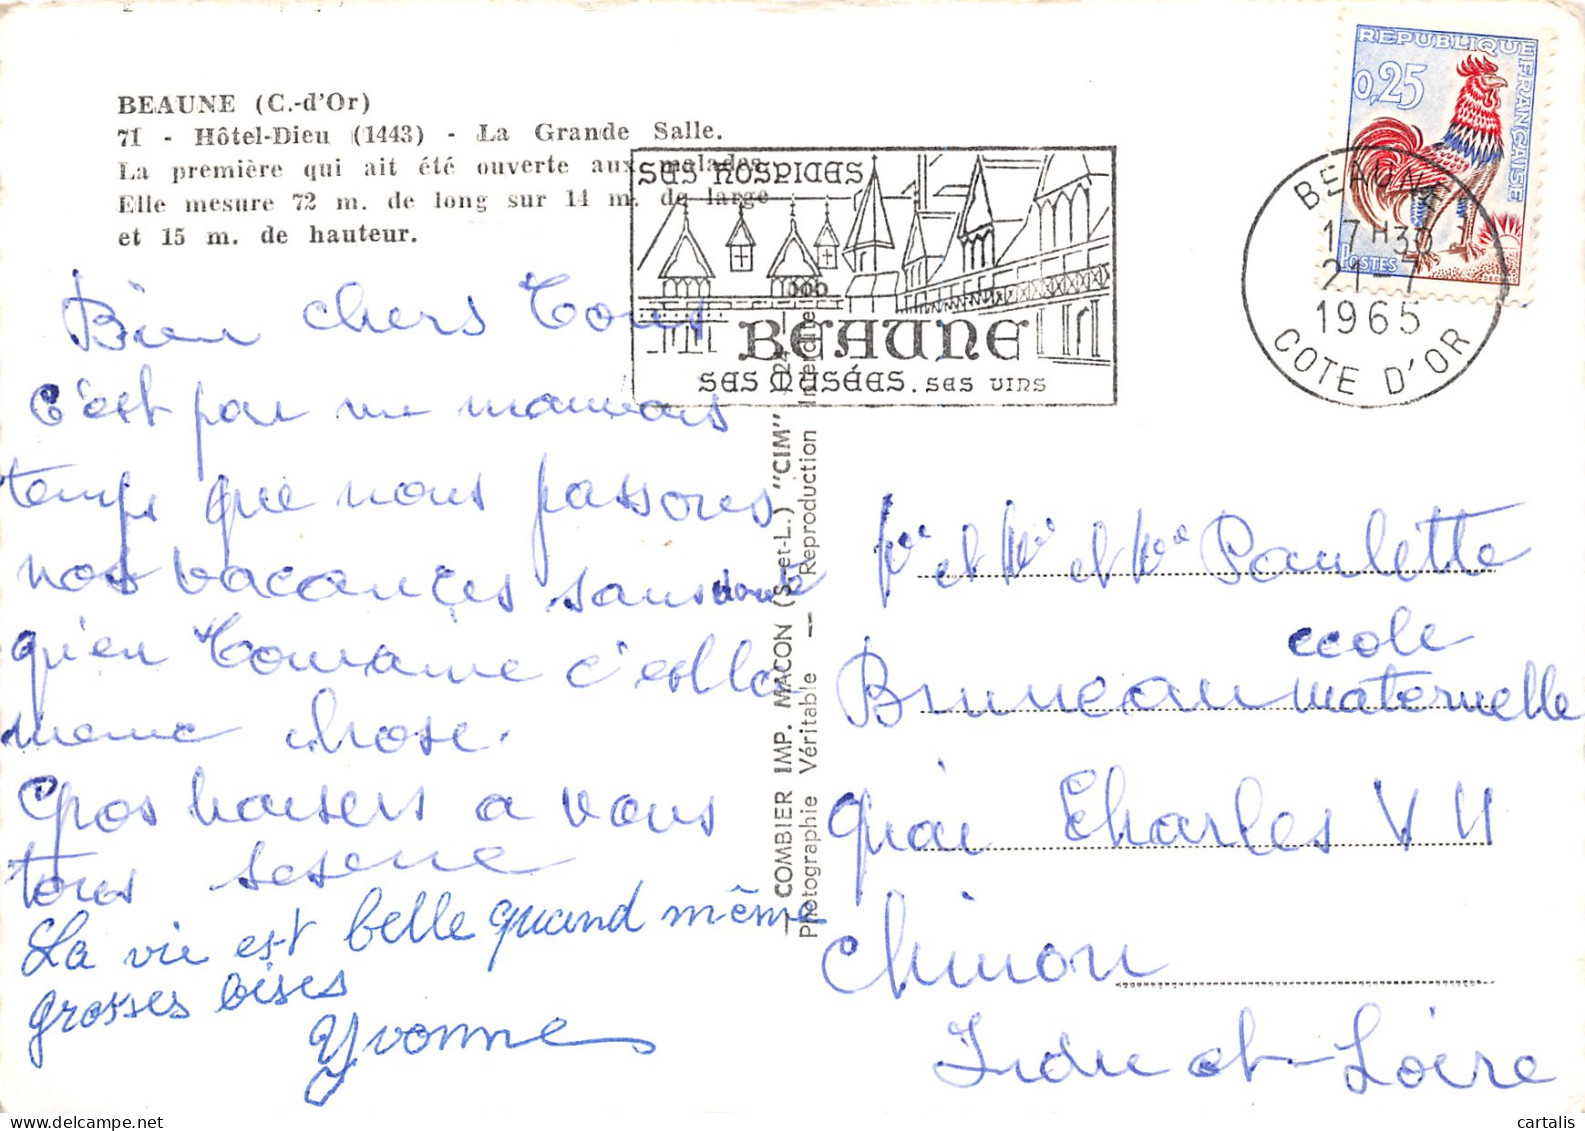 BEAUNE (C.-d'Or)
71 - Hôtel-Dieu (1443) - La Grande Salle.
La première qui ait été ouverte aux malades.
Elle mesure 72 m. de long sur 14 m. de large
et 15 m. de hauteur.
SES HOSPICES
BEAUNE
SES MUSÉES. SES VINS
REPUBLIQUE FRANÇAISE
0,25
POSTES
BEAUNE
17 H30
21-7
1965
COTE D'OR
Bien chers Tous
C'est par un mauvais
temps que nous passons
nos vacances sans doute
qu'en Touraine c'est la
meme chose.
Gros baisers a vous
tous
La vie est belle quand même
grosses bises
Yvonne
COMBIER IMP. MACON (S.-et-L.) "CIM"
Photographie Véritable — Reproduction Interdite
et et Paulette
Bruneau ecole maternelle
Quai Charles VII
Chinon
Indre et-Loire
cartalis